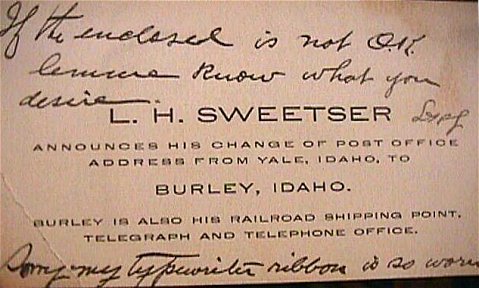 If the enclosed is not O.K.
lemme know what you
desire.
L. H. SWEETSER
ANNOUNCES HIS CHANGE OF POST OFFICE
ADDRESS FROM YALE, IDAHO, TO
BURLEY, IDAHO.
BURLEY IS ALSO HIS RAILROAD SHIPPING POINT,
TELEGRAPH AND TELEPHONE OFFICE.
Sorry my typewriter ribbon is so worn